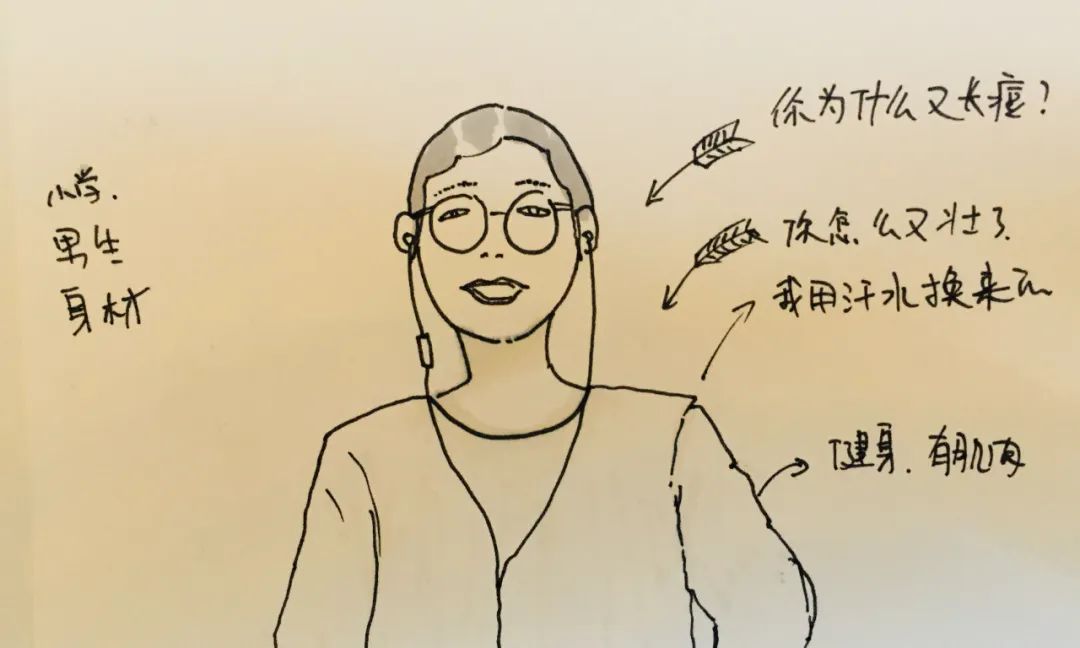 小学.
男生
身材
你为什么又长痘？
你怎么又壮了
我用汗水换来的
健身.有肌肉